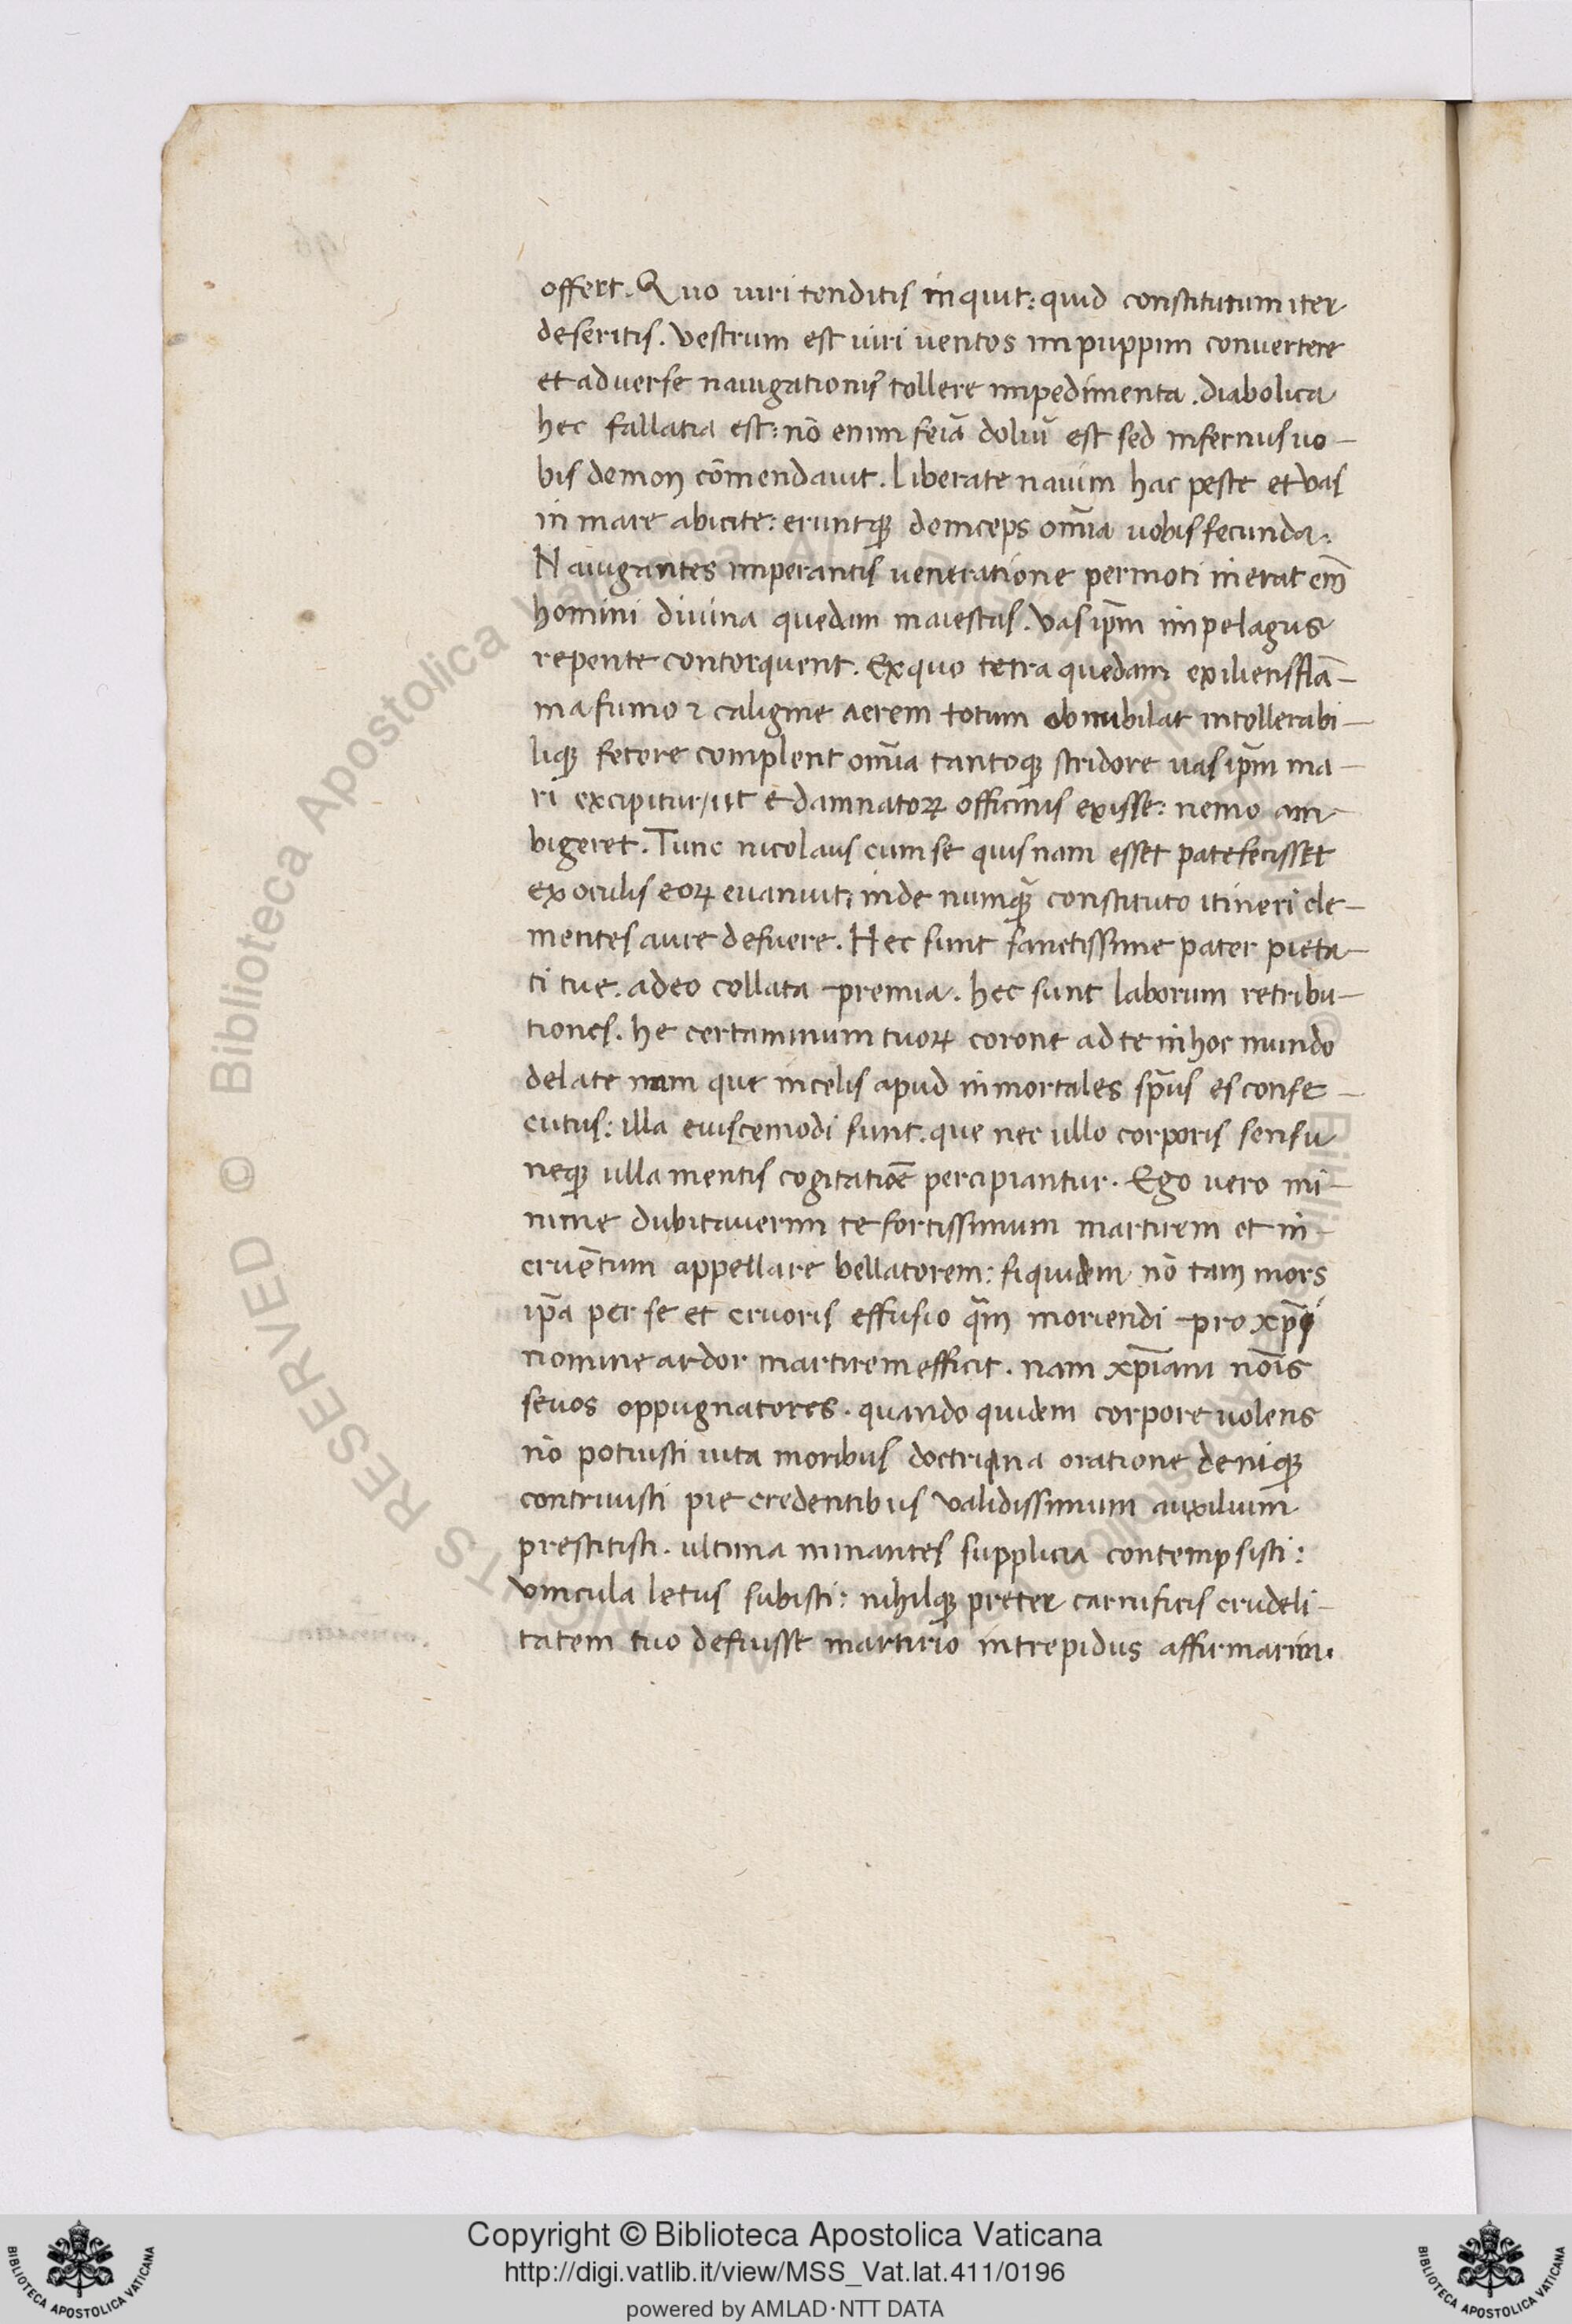 offert. Quo uiri tenditis inquit: quid constitutum iter
deseritis. Vestrum est uiri uentos in puppim conuertere
et aduerse nauigationis tollere impedimenta. diabolica
hec fallatia est: nō enim feiā doliū est sed infernus uo-
bis demon cōmendauit. Liberate nauim hac peste et vas
in mare abicite: eruntq; deinceps om̄ia uobis secunda.
Nauigantes imperantis ueneratione permoti inerat em̄
homini diuina quedam maiestas. Vas ip̄m in pelagus
repente contorquent. Ex quo tetra quedam exiliens flā-
ma fumo ⁊ caligine aerem totum obnubilat intollerabi-
liq; fetore complent om̄ia tantoq; stridore uas ip̄m ma-
ri excipitur/ut e damnatoꝝ officinis exisse: nemo am-
bigeret. Tunc nicolaus cum se quisnam esset patefecisset
ex oculis eoꝝ euanuit: inde numq̄ constituto itineri cle-
mentes aure defuere. Hec sunt sanctissime pater pieta-
ti tue. adeo collata premia. hec sunt laborum retribu-
tiones. he certaminum tuoꝝ corone ad te in hoc mundo
delate nam que in celis apud inmortales sp̄us es conse-
cutus: illa eiuscemodi sunt. que nec ullo corporis sensu
neq; ulla mentis cogitatiōe percipiantur. Ego uero mi-
nime dubitauerim te fortissimum martirem et in-
cruētum appellare bellatorem: siquidem nō tam mors
ip̄a per se et cruoris effusio q̄m moriendi pro xp̄i
nomine ardor martirem efficit. nam xp̄iani nōis
seuos oppugnatores. quando quidem corpore uolens
nō potuisti uita moribus doctrina oratione deniq;
contriuisti pie credentibus validissimum auxilium
prestitisti. ultima minantes supplicia contempsisti:
vincula letus subisti: nihilq; preter carnificis crudeli-
tatem tuo defuisse martirio intrepidus affirmarim.
Copyright © Biblioteca Apostolica Vaticana
http://digi.vatlib.it/view/MSS_Vat.lat.411/0196
powered by AMLAD·NTT DATA